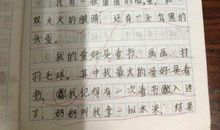 双大大的眼睛，还有一头乌黑的
头发。
我的爱好是看书、画画、打
羽毛球，其中我最大的爱好是看
书。我记得有一次看书入迷
了，奶奶叫我拿一些水来，结果